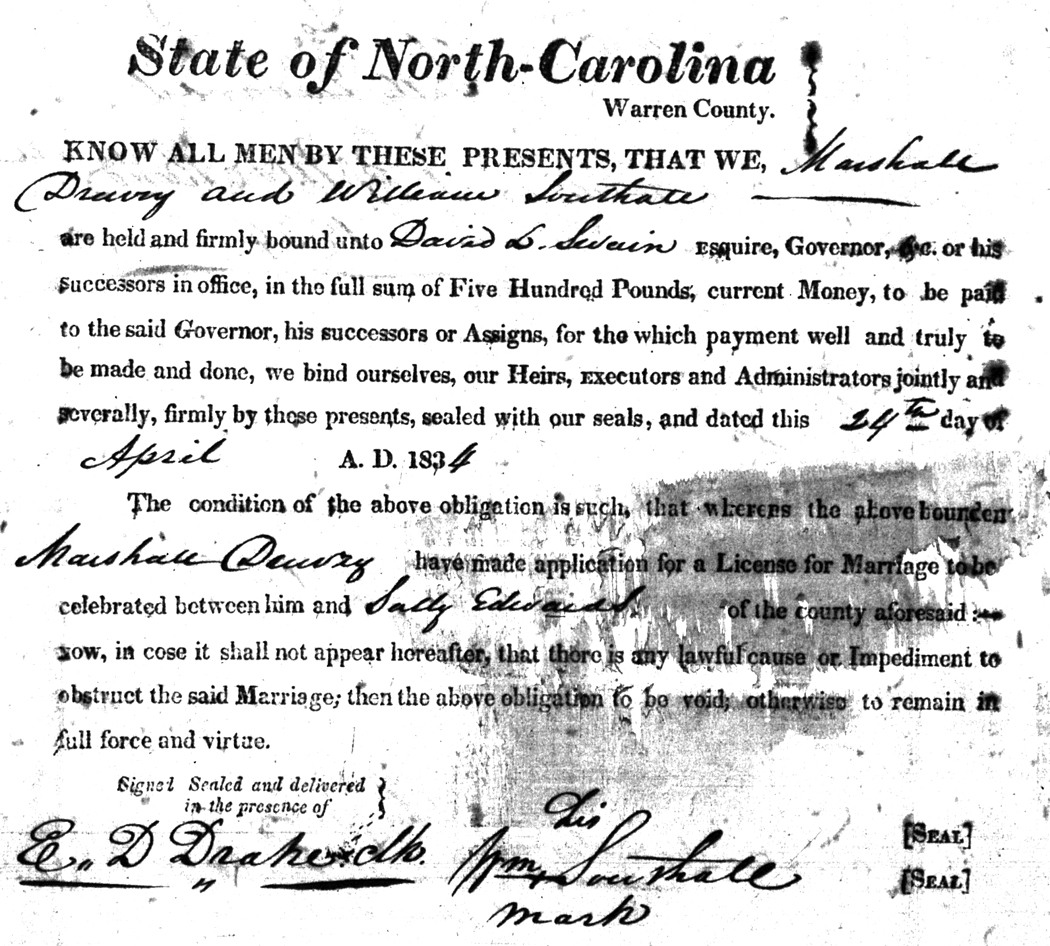 State of North-Carolina
Warren County.
KNOW ALL MEN BY THESE PRESENTS, THAT WE, Marshall
Drewry and William Southall
are held and firmly bound unto David L. Swain Esquire, Governor, &c. or his
successors in office, in the full sum of Five Hundred Pounds, current Money, to be paid
to the said Governor, his successors or Assigns, for the which payment well and truly to
be made and done, we bind ourselves, our Heirs, Executors and Administrators jointly and
severally, firmly by these presents, sealed with our seals, and dated this 24th day of
April A. D. 1834
The condition of the above obligation is such, that whereas the above bounden
Marshall Drewry have made application for a License for Marriage to be
celebrated between him and Sally Edwards. of the county aforesaid :—
now, in cose it shall not appear hereafter, that there is any lawful cause or Impediment to
obstruct the said Marriage; then the above obligation to be void; otherwise to remain in
full force and virtue.
Signed Sealed and delivered
in the presence of
his
E,, D Drake clk. Wm x Southall [SEAL]
mark [SEAL]